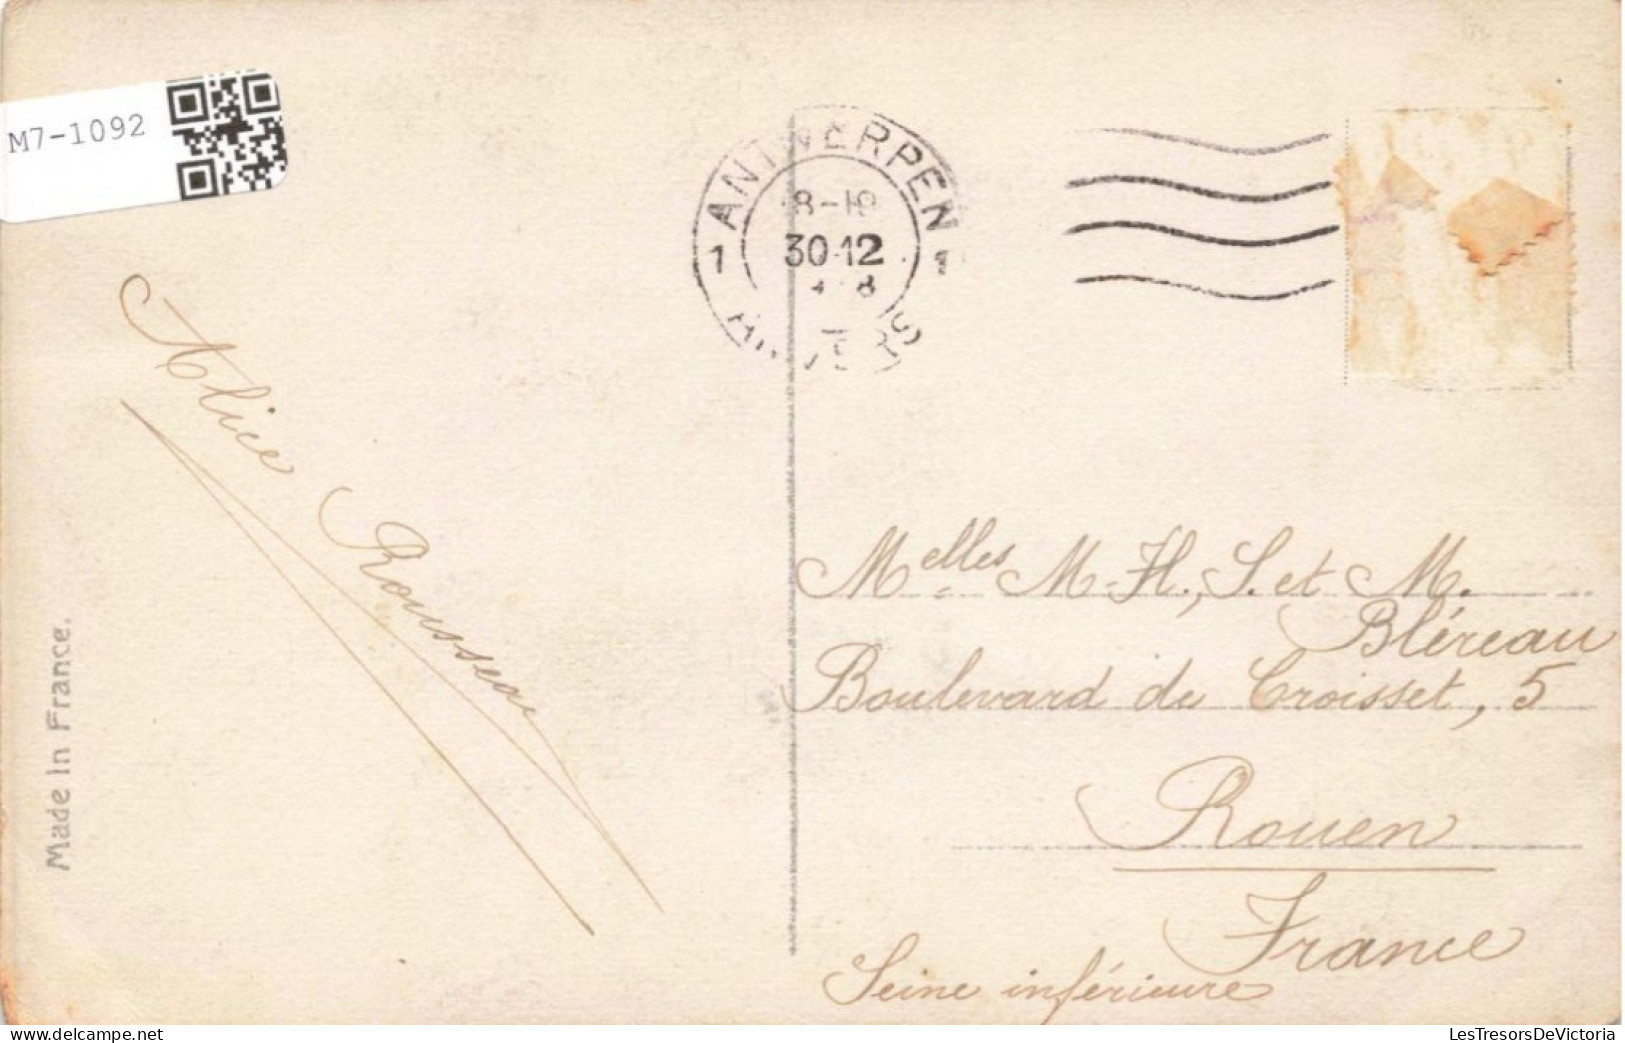 M7-1092
ANTWERPEN
1 1
30-12
Alice Rousseau
Made In France.
Melles M-H., S. et M.
Bléreau
Boulevard de Croisset, 5
Rouen
France
Seine inférieure
LesTresorsDeVictoria